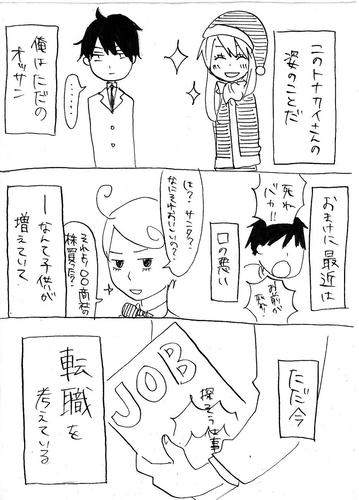 このトナカイさんの
姿のことだ
俺はただの
オッサン
……
おまけに最近は
死ね
バカ!!
お前が
口の悪い
は?サンタ?
なにそれおいしいの?
それより○○商事の
株買った?
ーなんて子供が
増えていて
ただ今
JOB
探そう仕事
転職を
考えている